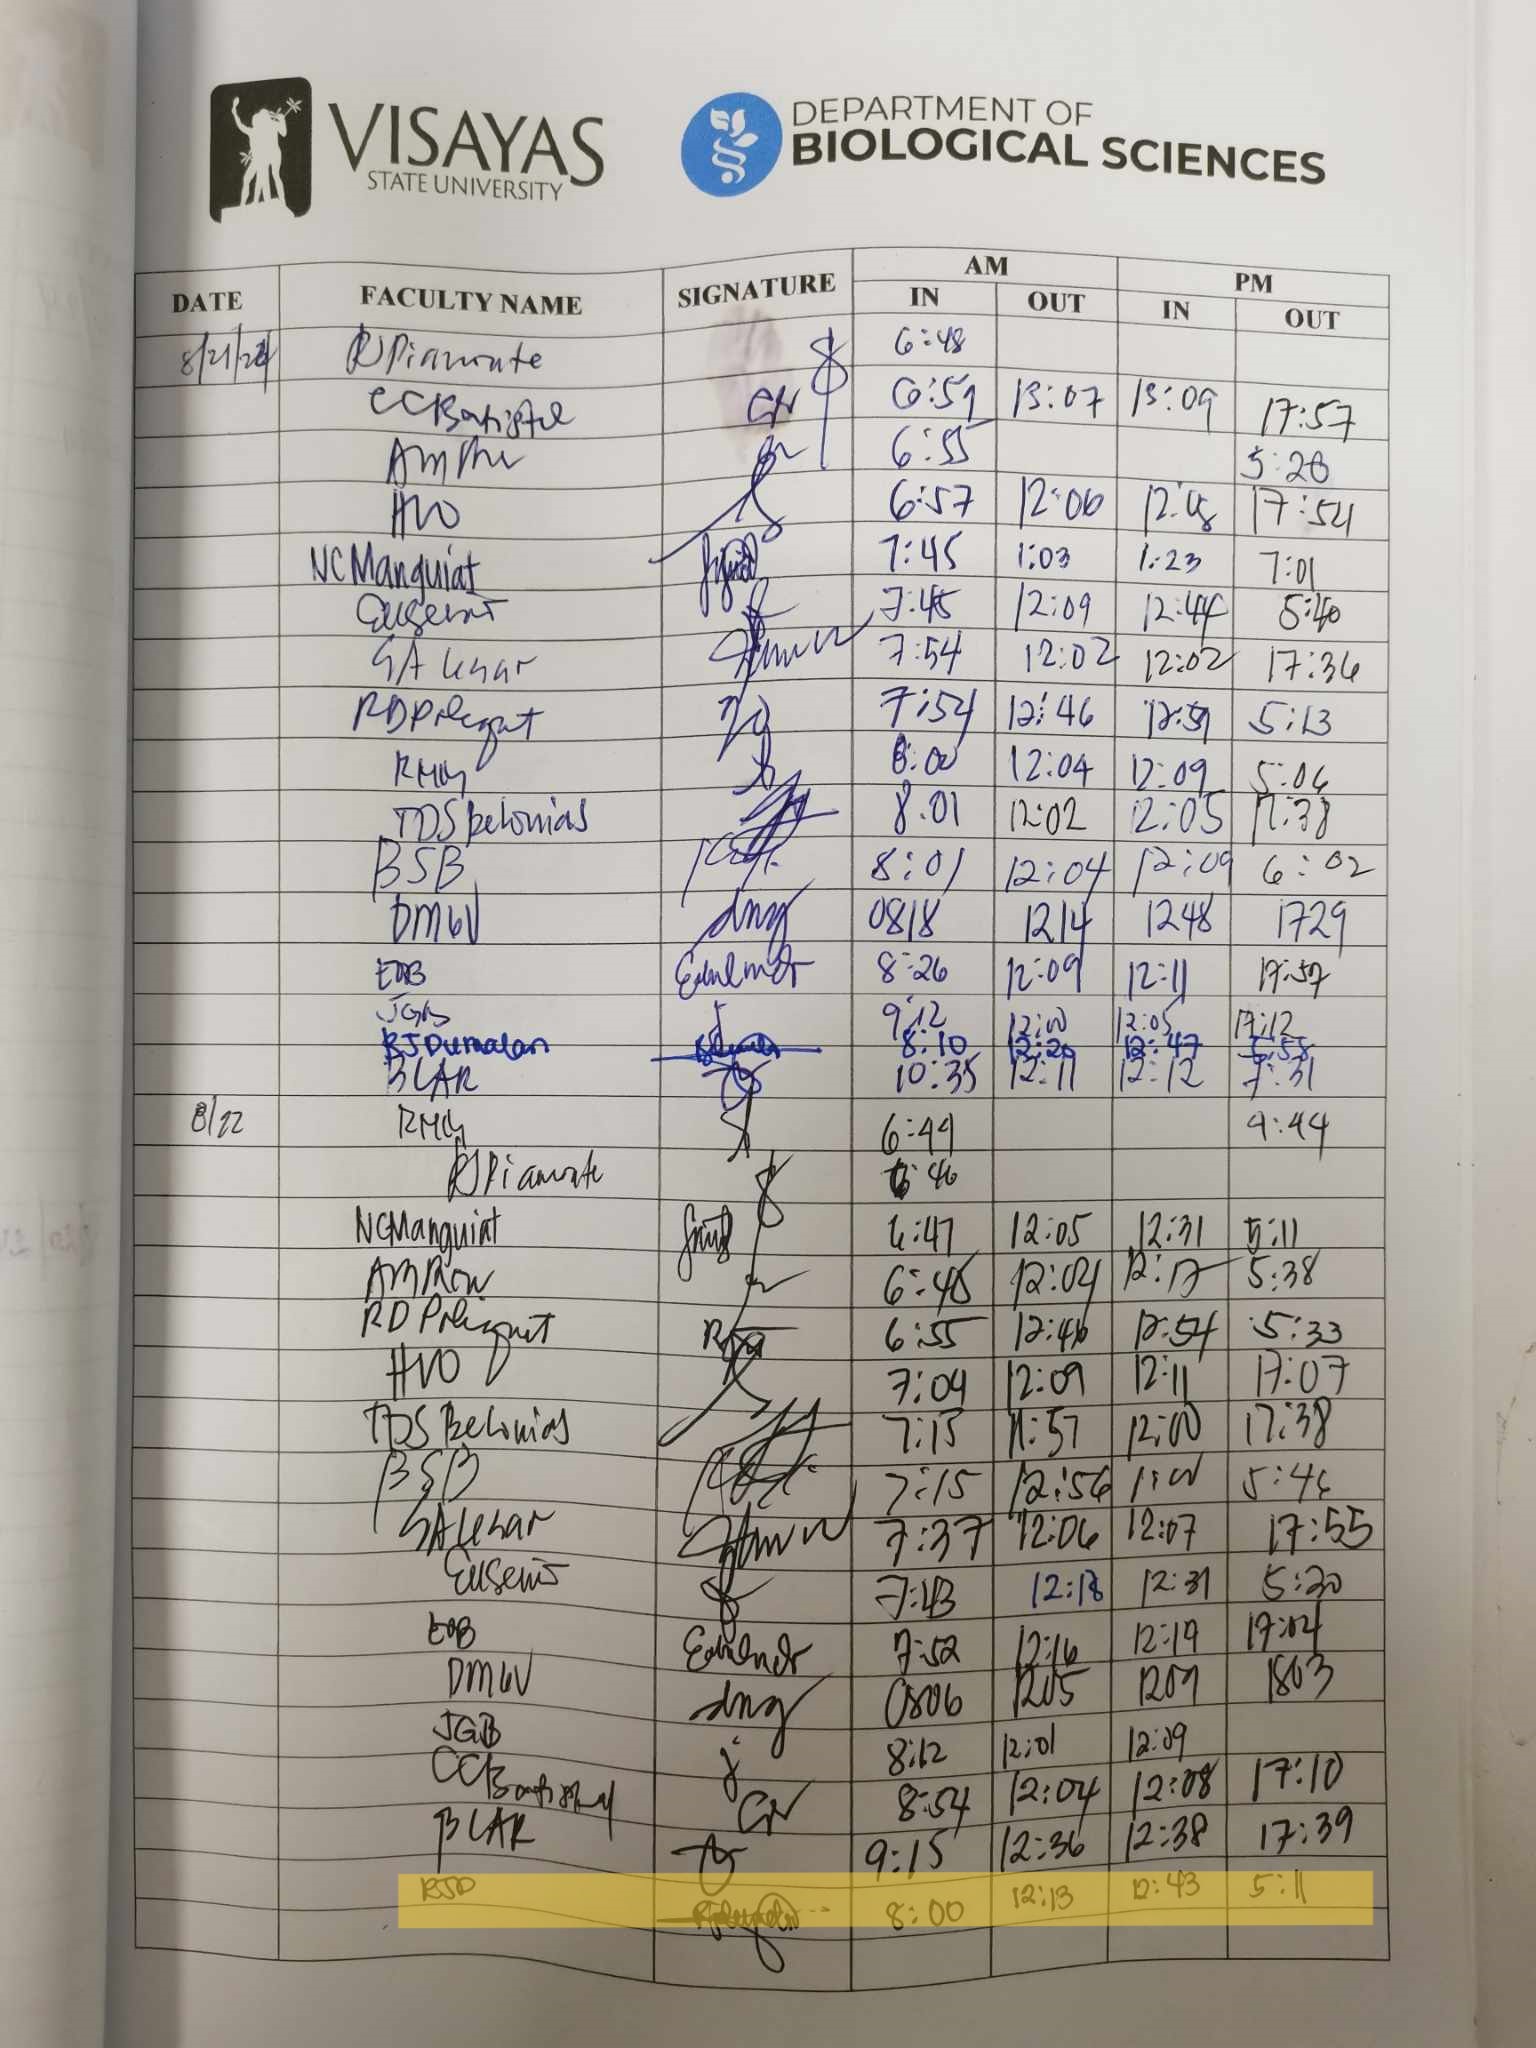 VISAYAS
STATE UNIVERSITY
DEPARTMENT OF
BIOLOGICAL SCIENCES
DATE FACULTY NAME SIGNATURE AM PM
IN OUT IN OUT
8/21/24 RJPiamonte 6:48
CCBatistel 6:59 13:07 13:09 17:57
6:55 5:20
HVO 6:57 12:06 17:54
NCManguiat 7:45 1:03 1:23 7:01
Eusenio 7:45 12:09 12:44 5:40
7:54 12:02 12:02 17:36
7:54 12:46 12:59 5:13
8:00 12:04 12:09 5:06
TDSBelonias 8:01 12:02 12:05 17:38
BSB 8:01 12:04 12:09 6:02
DMGV 0818 1214 1248 1729
EOB 8:26 12:09 12:11 17:57
JGB 9:12 12:00 12:05 17:12
RJDumalan 8:10 12:20 12:47 5:58
BLAR 10:35 12:11 12:12 7:31
8/22 6:49 4:44
RJPiamonte 6:46
NCManguiat 6:47 12:05 12:31 5:11
6:48 12:04 12:12 5:38
6:55 12:46 12:54 5:33
HVO 7:04 12:09 12:11 17:07
TDS Belonias 7:15 11:57 12:00 17:38
BSB 7:15 12:56 1:00 5:46
7:37 12:06 12:07 17:55
Eusenio 7:43 12:18 12:31 5:20
EOB 7:52 12:16 12:19 17:04
DMGV 0806 1205 1209 1803
JGB 8:12 12:01 12:09
CCBatistel 8:54 12:04 12:08 17:10
BLAR 9:15 12:36 12:38 17:39
RJD 8:00 12:13 12:43 5:11